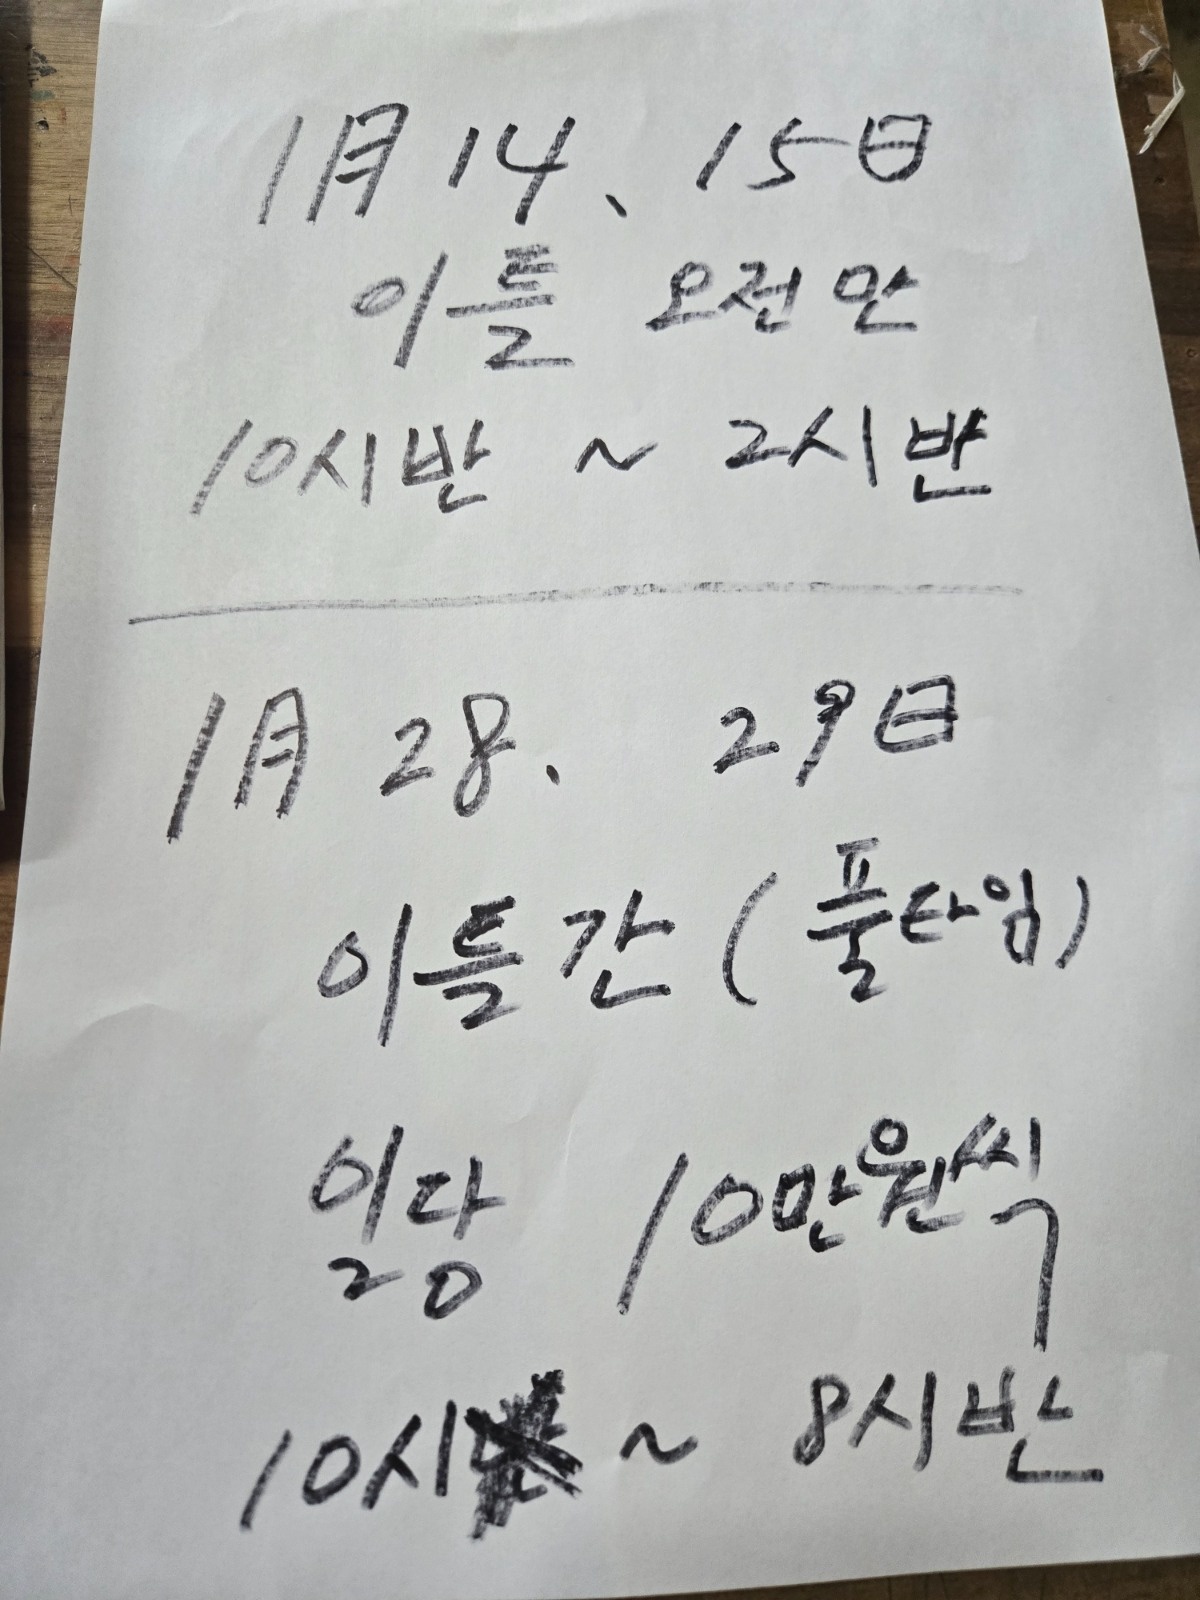 1月 14、15日
이틀 오전만
10시반 ~ 2시반
1月 28、29日
이틀간 (풀타임)
일당 10만원씩
10시 ~ 8시반